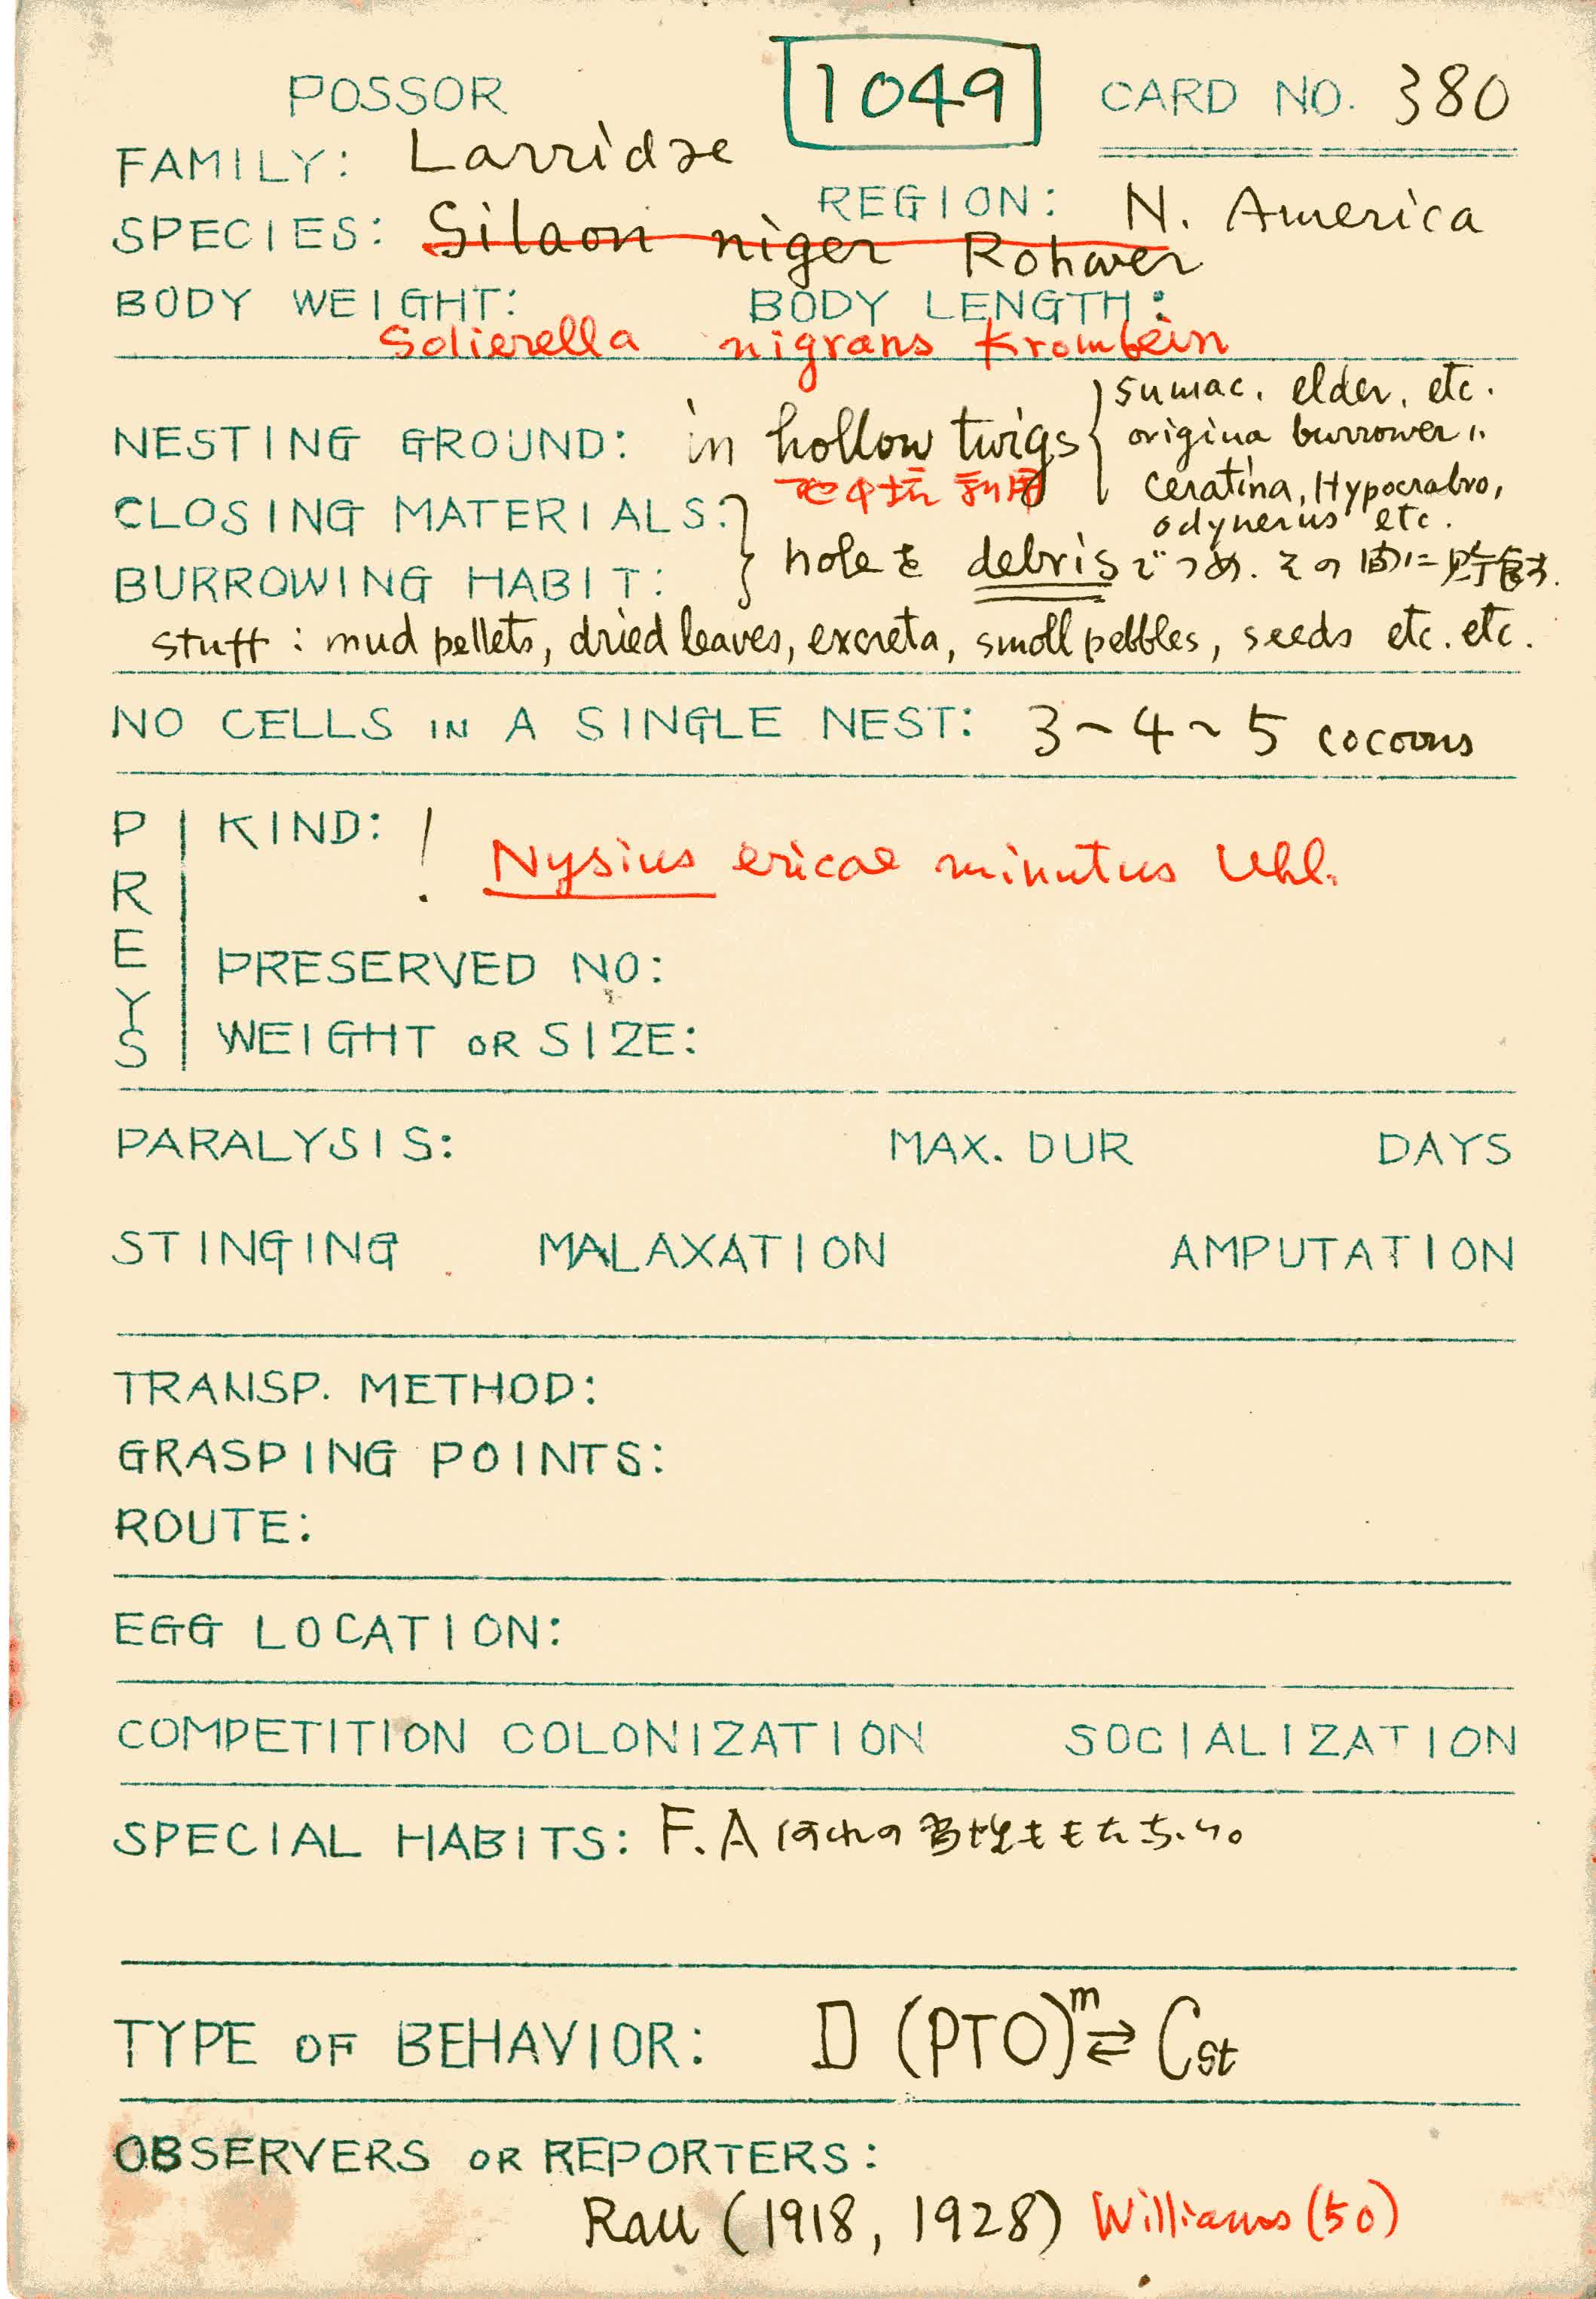 POSSOR 1049 CARD NO. 380
FAMILY: Larridae
REGION: N. America
SPECIES: Silaon niger Rohwer
BODY WEIGHT: BODY LENGTH:
Solierella nigrans Krombein
NESTING GROUND: in hollow twigs { sumac, elder, etc.
origina burrower "
Ceratina, Hypocrabro,
odynerus etc.
利用
CLOSING MATERIALS: }
BURROWING HABIT: } holeを debrisでつめ、その間に貯食す.
stuff : mud pellets, dried leaves, excreta, small pebbles, seeds etc. etc.
NO CELLS IN A SINGLE NEST: 3~4~5 cocoons
PREYS
KIND: ! Nysius ericae minutus Uhl.
PRESERVED NO:
WEIGHT OR SIZE:
PARALYSIS: MAX. DUR DAYS
STINGING MALAXATION AMPUTATION
TRANSP. METHOD:
GRASPING POINTS:
ROUTE:
EGG LOCATION:
COMPETITION COLONIZATION SOCIALIZATION
SPECIAL HABITS: F.A
TYPE OF BEHAVIOR: D (PTO)^m ⇄ Cst
OBSERVERS OR REPORTERS:
Rau (1918, 1928) Williams (50)